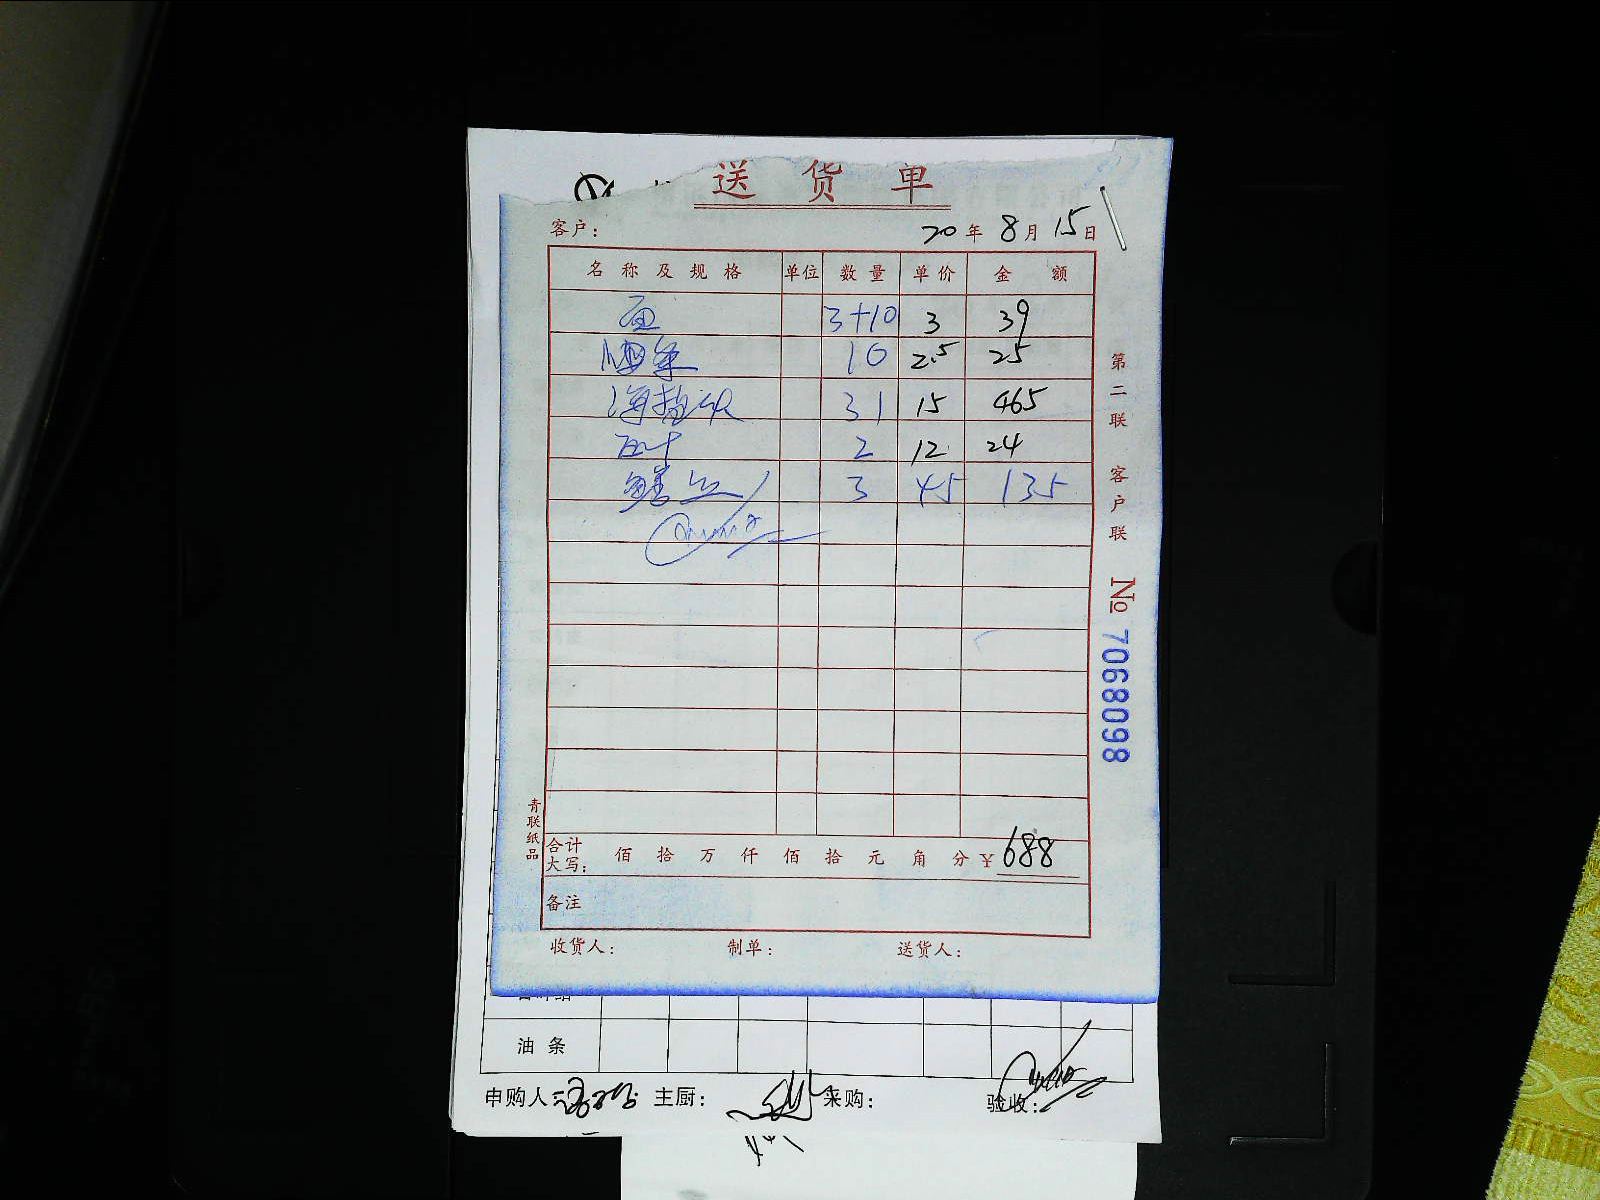 送货单
客户： 20年8月15日
名称及规格 单位 数量 单价 金额
面 3+10 3 39
10 2.5 25
31 15 465
百叶 2 12 24
鳝丝 3 45 135
合计大写： 佰 拾 万 仟 佰 拾 元 角 分 ¥688
备注
收货人： 制单： 送货人：
第二联 客户联
№ 7068098
青联纸品
油条
申购人： 主厨： 采购： 验收：